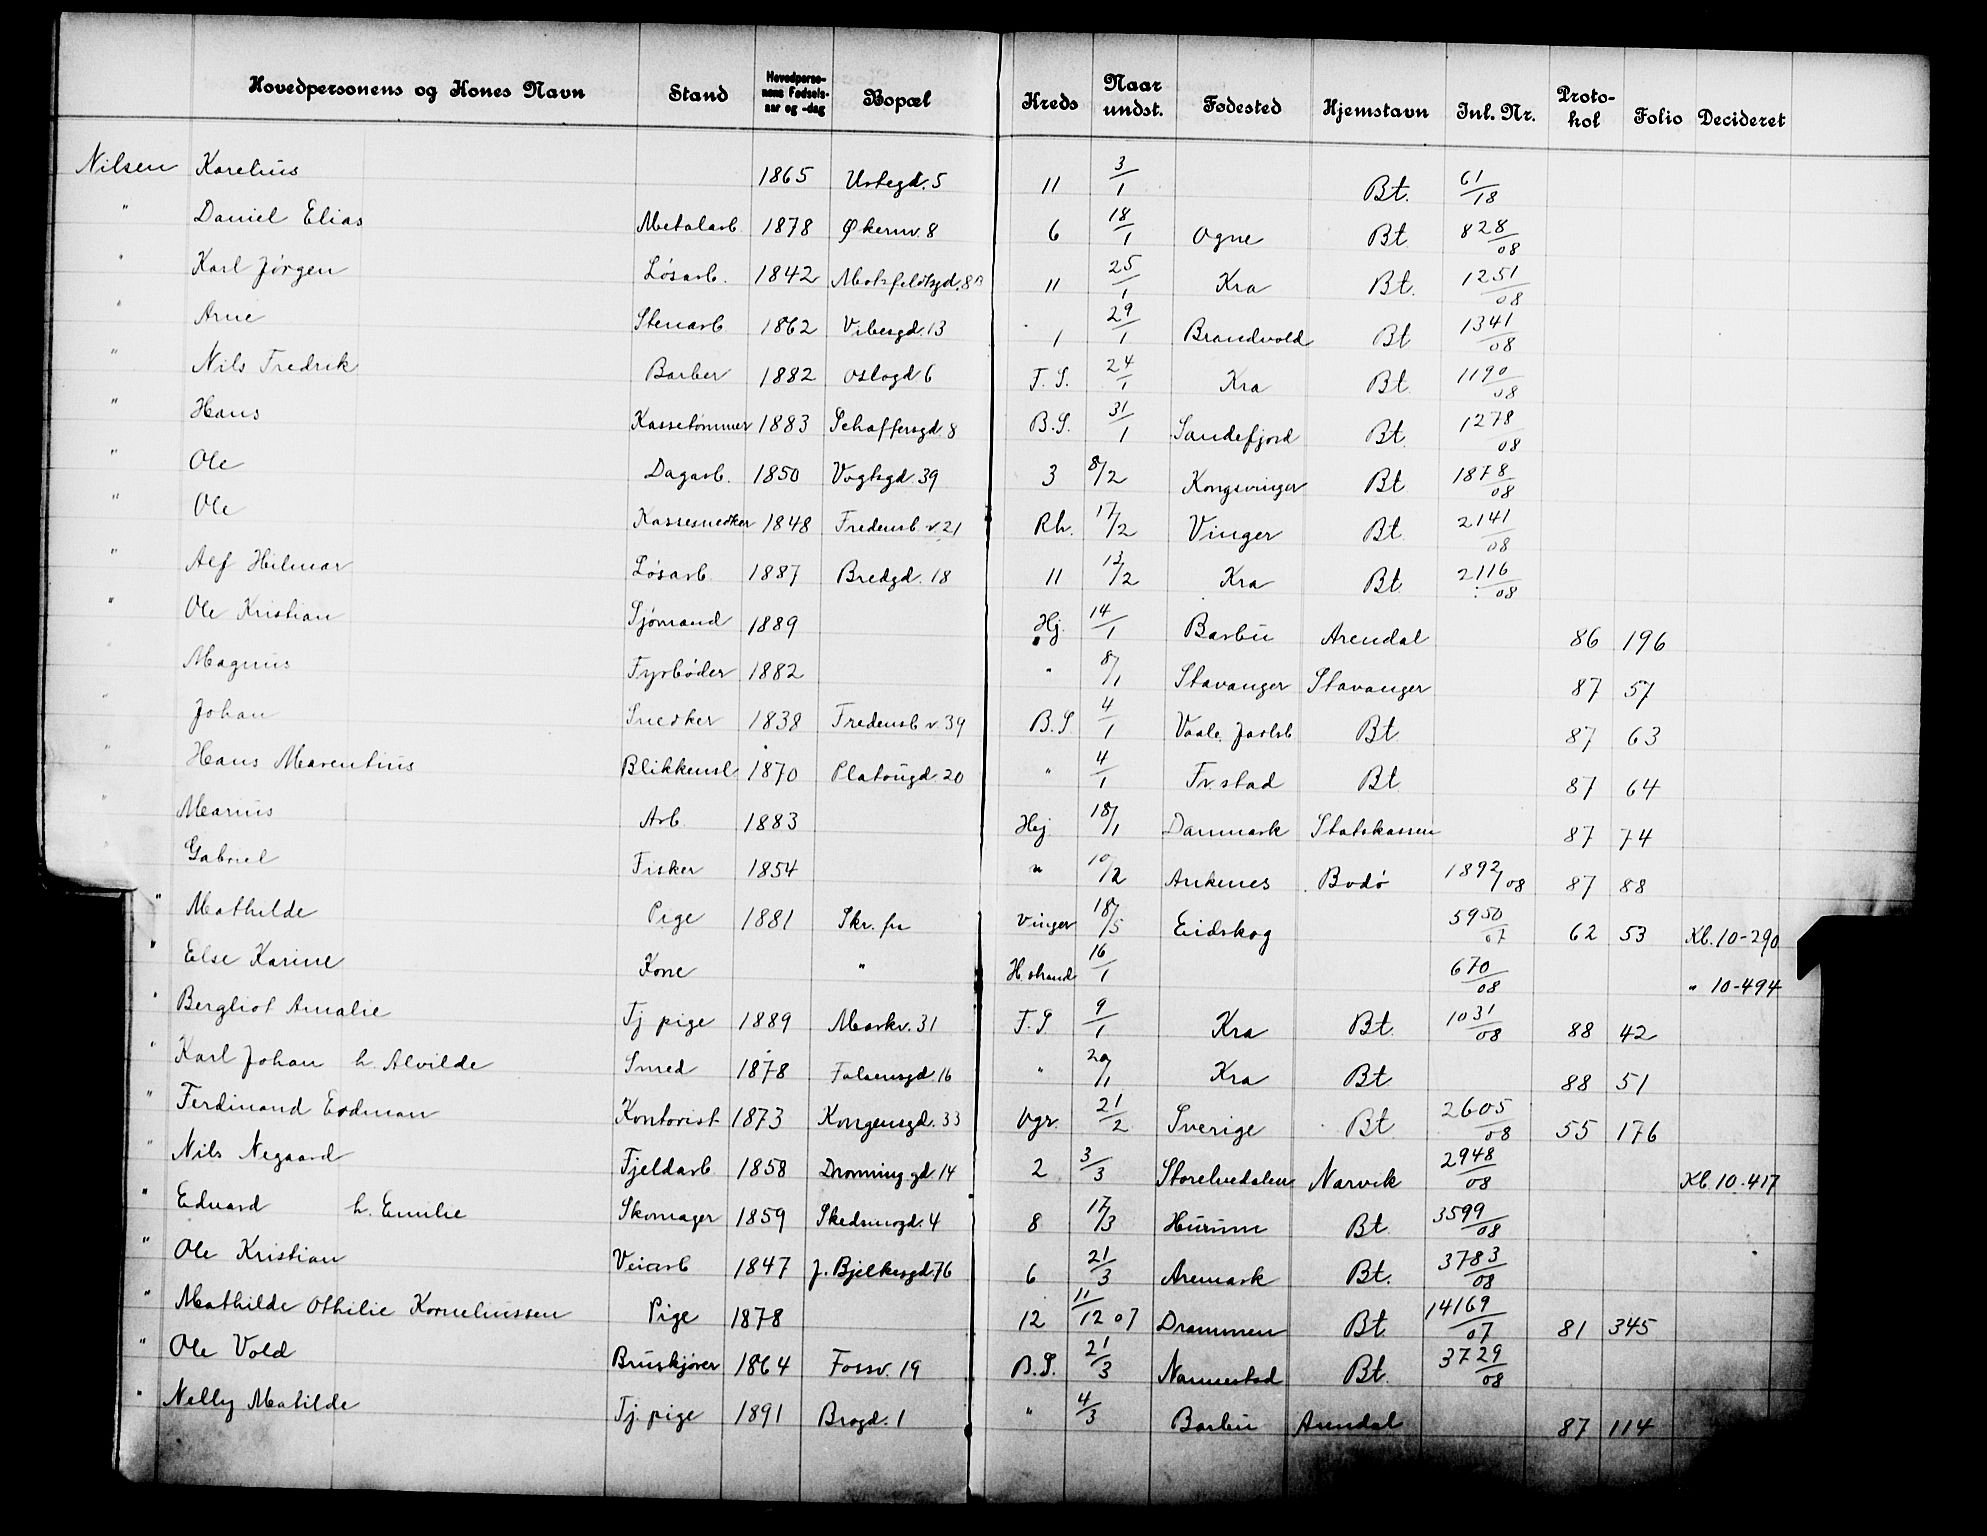 Hovedpersonens og Kones Navn Stand Hovedpersonens Fødselsaar og -dag Bopæl Kreds Naar undst. Fødested Hjemstavn Inl. Nr. Protokol Folio Decideret
Nilsen Karelius 1865 Urtegd. 5 11 3/1 Bt. 61/18
" Daniel Elias Metalarb. 1878 Økernv. 8 6 18/1 Ogne Bt 828/08
" Karl Jørgen Løsarb. 1842 Motzfeldtsgd. 8B 11 25/1 Kra Bt. 1251/08
" Arne Stenarb. 1862 Vibesgd. 13 1 29/1 Brandvold Bt 1341/08
" Nils Fredrik Barber 1882 Oslogd 6 T. S. 24/1 Kra Bt. 1190/08
" Hans Kassetømmer 1883 Schaffersgd. 8 B.S. 31/1 Sandefjord Bt. 1278/08
" Ole Dagarb. 1850 Vogtsgd. 39 3 8/2 Kongsvinger Bt 1878/08
" Ole Kassesnedker 1848 Fredensb v. 21 Rh. 17/2 Vinger Bt. 2141/08
" Alf Hilmar Løsarb 1887 Bredgd. 18 11 13/2 Kra Bt 2116/08
" Ole Kristian Sjømand 1889 Hj. 14/1 Barbu Arendal 86 196
Magnus Fyrbøder 1882 " 8/1 Stavanger Stavanger 87 57
" Johan Snedker 1838 Fredensb v. 39 B.S 4/1 Vaale. Jarlsb Bt 87 63
" Hans Marentius Blikkensl 1870 Platougd 20 " 4/1 Fr.stad Bt 87 64
" Marius Arb 1883 Hej. 18/1 Danmark Statskassen 87 74
Gabriel Fisker 1854 " 10/2 Ankenes Bodø 1892/08 87 88
" Mathilde Pige 1881 Skr. fra Vinger 18/5 Eidskog 5950/07 62 53 Kb. 10-290
" Else Karine Kone " H.strand 16/1 670/08 " 10-494
" Bergliot Amalie Tj. pige 1889 Markv. 31 T. S 9/1 Kra Bt. 1031/08 88 42
" Karl Johan h. Alvilde Smed 1878 Falsensgd. 16 " 20/1 Kra Bt 88 51
" Ferdinand Erdman Kontorist 1873 Kongensgd. 33 Vgr. 21/2 Sverige Bt 2605/08 55 176
" Nils Negaard Fjeldarb. 1858 Dronning.gd. 14 2 3/3 Storelvedalen Narvik 2948/08 Kb. 10-417
" Edvard h. Emilie Skomager 1859 Skedsmogd. 4 8 17/3 Hurum Bt. 3599/08
" Ole Kristian Veiarb 1847 J. Bjelkesgd. 76 6 21/3 Aremark Bt. 3783/08
" Mathilde Othilie Korneliussen Pige 1878 12 11/12 07 Drammen Bt. 14169/07 81 345
" Ole Vold Bruskjører 1864 Fossv. 19 B.S. 21/3 Nannestad Bt. 3729/08
" Nelly Matilde Tj. pige 1891 Brogd. 1 " 4/3 Barbu Arendal 87 114